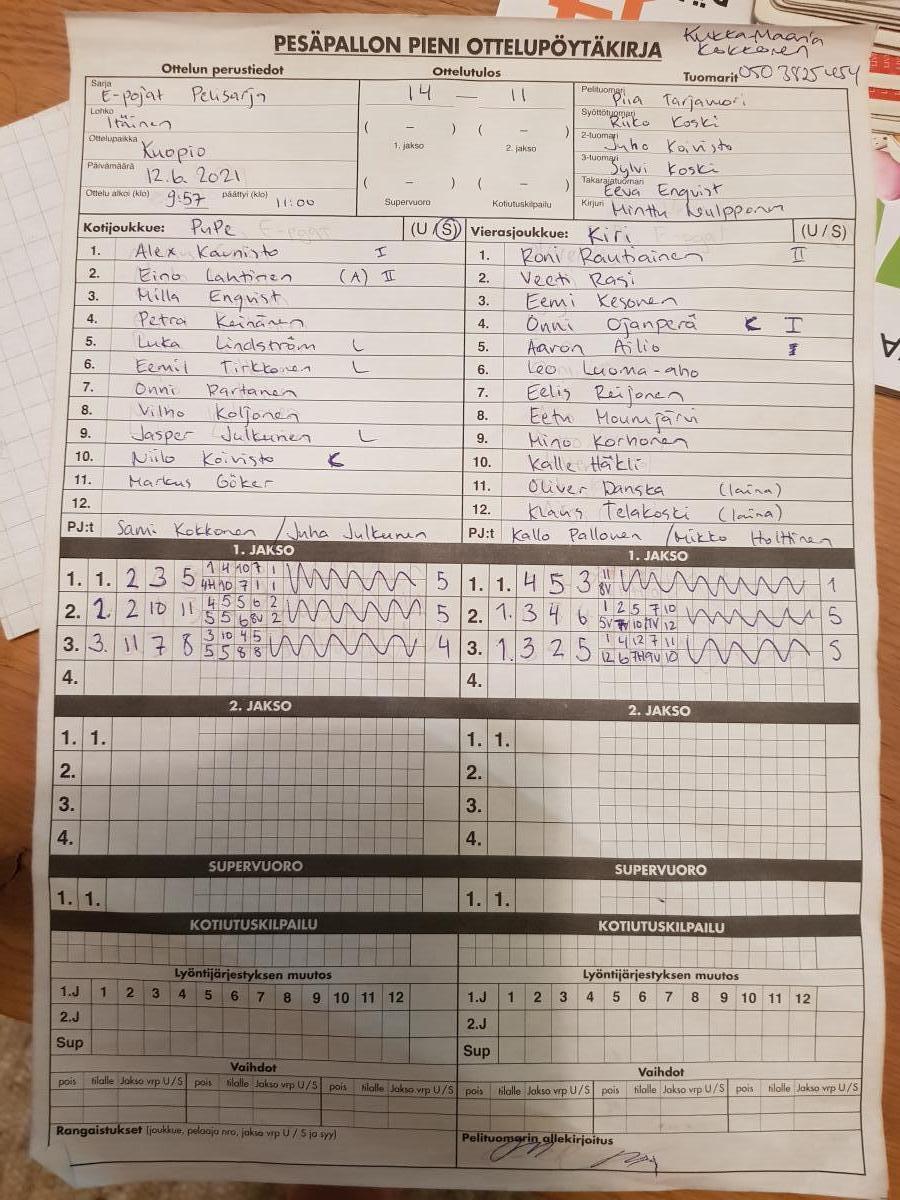 PESÄPALLON PIENI OTTELUPÖYTÄKIRJA
Kukka-Maaria
Kokkonen
Ottelun perustiedot
Ottelutulos
Tuomarit
Sarja
E-pojat Pelisarja
Lohko
Itäinen
Ottelupaikka
Kuopio
Päivämäärä
12.6 2021
Ottelu alkoi (klo) 9:57 päättyi (klo) 11:00
14 — 11
( – ) ( – )
1. jakso 2. jakso
( – ) ( – )
Supervuoro Kotiutuskilpailu
Pelituomari
Piia Tarjamori
Syöttötuomari
Riiko Koski
2-tuomari
Juho Koivisto
3-tuomari
Sylvi Koski
Takarajatuomari
Eeva Enqvist
Kirjuri Minttu
Kotijoukkue: PuPe (U / S)
1. Alex Kaunisto I
2. Eino Lahtinen (A) II
3. Milla Enqvist
4. Petra Keinänen
5. Luka Lindström L
6. Eemil Tirkkonen L
7. Onni Partanen
8. Vilho Koljonen
9. Jasper Julkunen L
10. Niilo Koivisto K
11. Markus Göker
12.
PJ:t Sami Kokkonen / Juha Julkunen
Vierasjoukkue: Kiri (U / S)
1. Roni Rautiainen II
2. Veeti Rasi
3. Eemi Kesonen
4. Onni Ojanperä K I
5. Aaron Ailio I
6. Leo Luoma-aho
7. Eelis Reijonen
8. Eetu Mounujärvi
9. Mino Korhonen
10. Kalle Häkli
11. Oliver Danska (laina)
12. Klaus Telakoski (laina)
PJ:t Kallo Pallonen / Mikko Holttinen
1. JAKSO
1. 1. 2 3 5 1 4 10 7 1 5
4H 10 7 1 1
2. 2. 2 10 11 4 5 5 6 2 5
5 5 6 8V 2
3. 3. 11 7 8 3 10 4 5 4
5 5 8 8
4.
1. JAKSO
1. 1. 4 5 3 11 1
8V
2. 1. 3 4 6 1 2 5 7 10 5
5V 10 12
3. 1. 3 2 5 1 4 12 7 11 5
12 6 7H 9V 10
4.
2. JAKSO
1. 1.
2.
3.
4.
2. JAKSO
1. 1.
2.
3.
4.
SUPERVUORO
1. 1.
SUPERVUORO
1. 1.
KOTIUTUSKILPAILU
KOTIUTUSKILPAILU
Lyöntijärjestyksen muutos
1.J 1 2 3 4 5 6 7 8 9 10 11 12
2.J
Sup
Lyöntijärjestyksen muutos
1.J 1 2 3 4 5 6 7 8 9 10 11 12
2.J
Sup
Vaihdot
pois tilalle Jakso vrp U / S pois tilalle Jakso vrp U / S pois tilalle Jakso vrp U / S
Vaihdot
pois tilalle Jakso vrp U / S pois tilalle Jakso vrp U / S pois tilalle Jakso vrp U / S
Rangaistukset (joukkue, pelaaja nro, jakso vrp U / S ja syy)
Pelituomarin allekirjoitus